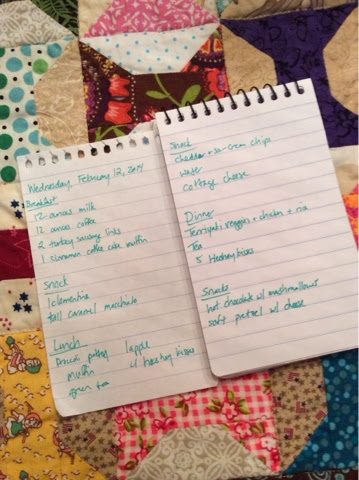 Wednesday, February 12, 2014
Breakfast
12 ounces milk
12 ounces coffee
2 turkey sausage links
1 cinnamon coffee cake muffin
Snack
1 clementine
tall caramel macchiato
Lunch
1 apple
muffin w/ hershey kisses
green tea
Snack
cheddar + sour cream chips
water
cottage cheese
Dinner
Terriyaki veggies + chicken + rice
Tea
5 Hershey kisses
Snacks
hot chocolate w/ marshmallows
soft pretzel w/ cheese